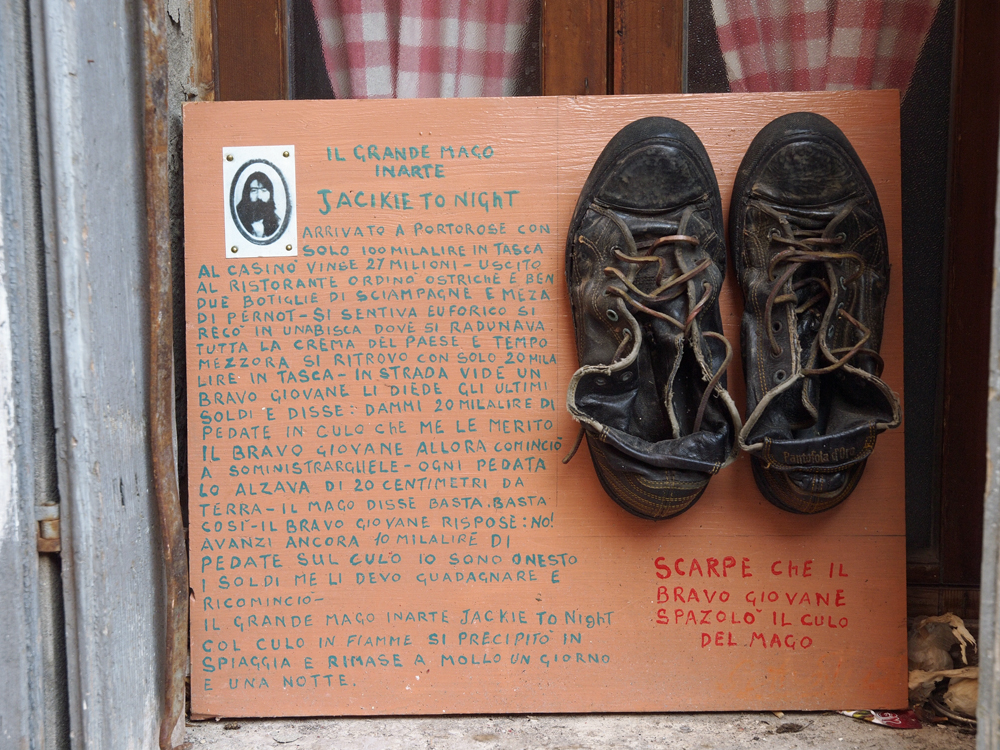 IL GRANDE MAGO
INARTE
JACIKIE TO NIGHT
ARRIVATO A PORTOROSE CON
SOLO 100 MILALIRE IN TASCA
AL CASINO VINSE 27 MILIONI - USCITO
AL RISTORANTE ORDINO OSTRICHE E BEN
DUE BOTIGLIE DI SCIAMPAGNE E MEZA
DI PERNOT - SI SENTIVA EUFORICO SI
RECO' IN UNABISCA DOVE SI RADUNAVA
TUTTA LA CREMA DEL PAESE E TEMPO
MEZZORA SI RITROVO CON SOLO 20 MILA
LIRE IN TASCA - IN STRADA VIDE UN
BRAVO GIOVANE LI DIEDE GLI ULTIMI
SOLDI E DISSE: DAMMI 20 MILALIRE DI
PEDATE IN CULO CHE ME LE MERITO
IL BRAVO GIOVANE ALLORA COMINCIO'
A SOMINISTRARGLIELE - OGNI PEDATA
LO ALZAVA DI 20 CENTIMETRI DA
TERRA - IL MAGO DISSE BASTA. BASTA
COSI' - IL BRAVO GIOVANE RISPOSE: NO!
AVANZI ANCORA 10 MILALIRE DI
PEDATE SUL CULO IO SONO ONESTO
I SOLDI ME LI DEVO GUADAGNARE E
RICOMINCIO -
IL GRANDE MAGO INARTE JACKIE TO NIGHT
COL CULO IN FIAMME SI PRECIPITO' IN
SPIAGGIA E RIMASE A MOLLO UN GIORNO
E UNA NOTTE.
Pantofola d'Oro
SCARPE CHE IL
BRAVO GIOVANE
SPAZOLO' IL CULO
DEL MAGO